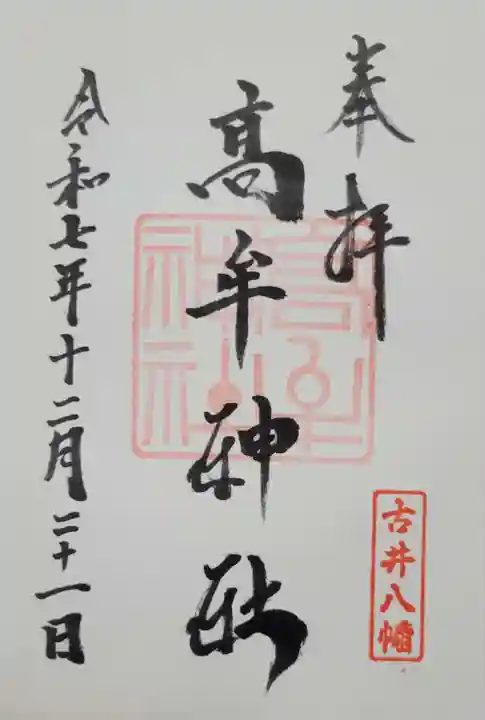 奉拝
古井八幡
高牟神社
高牟神社
令和七年十二月二十一日